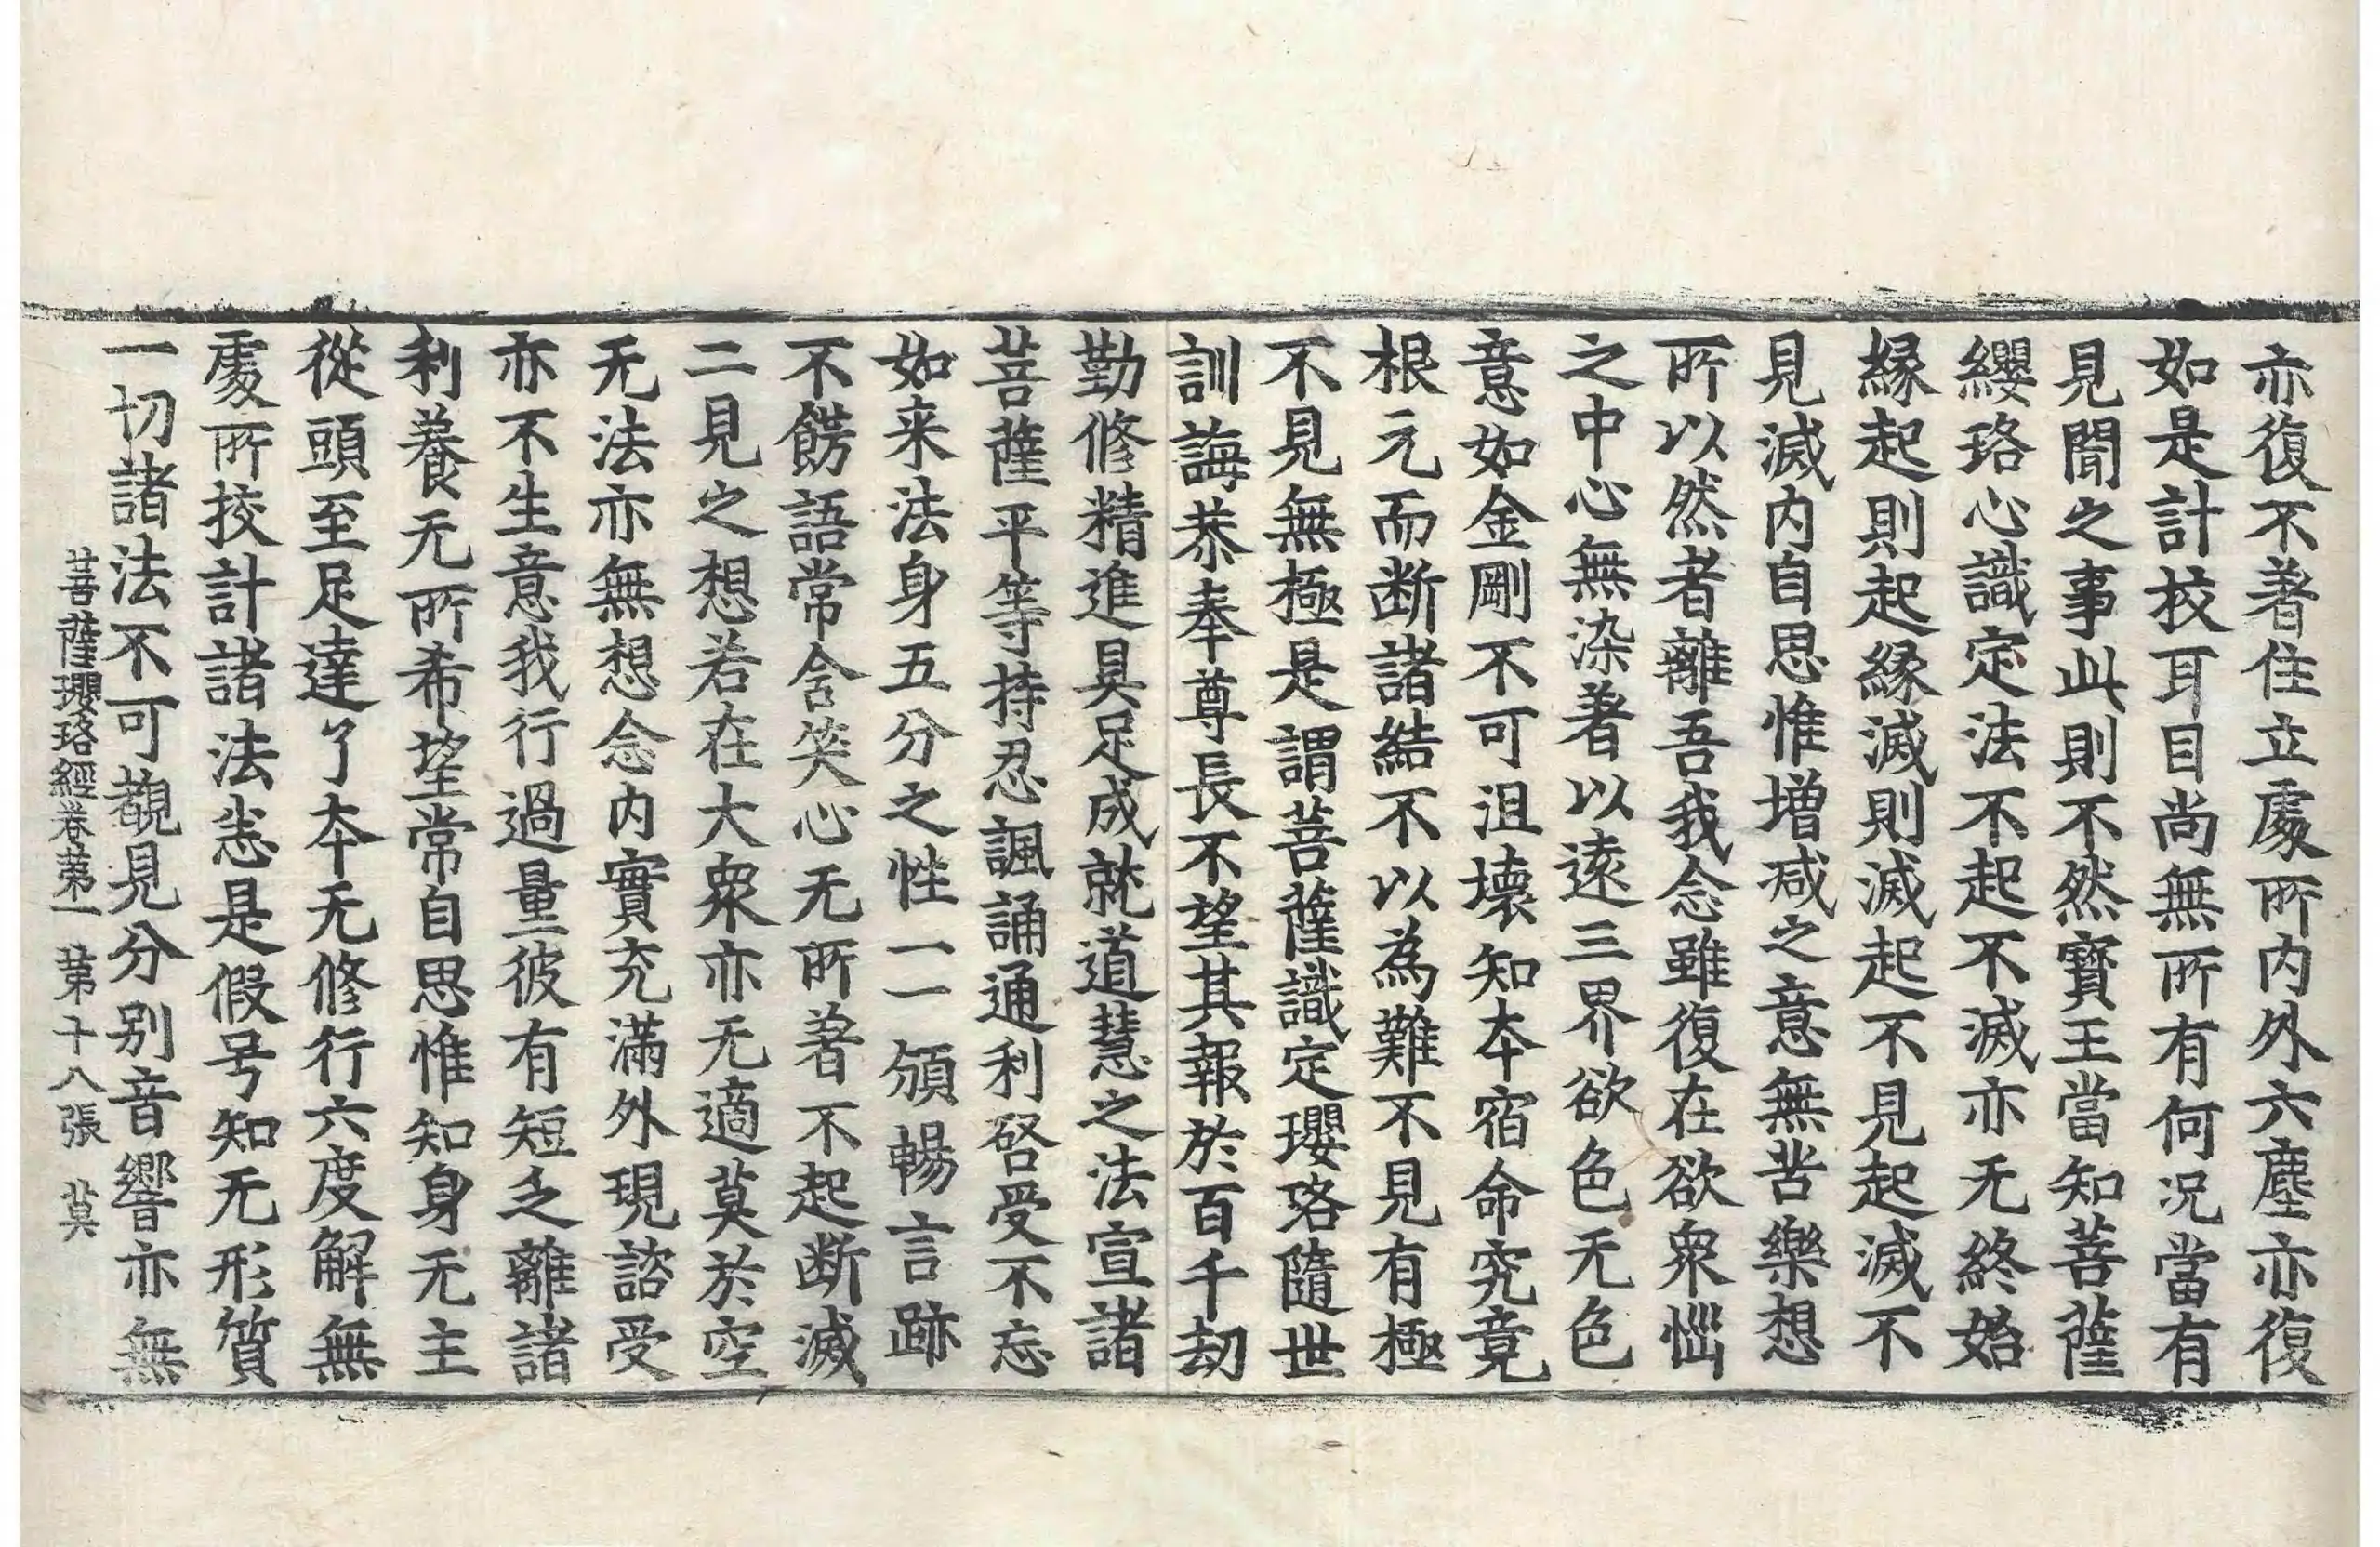 亦復不著住立處所内外六塵亦復
如是計挍耳目尚無所有何況當有
見聞之事此則不然寶王當知菩薩
纓珞心識定法不起不滅亦无終始
緣起則起緣滅則滅起不見起滅不
見滅内自思惟增减之意無苦樂想
所以然者離吾我念雖復在欲衆惱
之中心無染著以遠三界欲色无色
意如金剛不可沮壞知本宿命究竟
根元而断諸結不以為難不見有極
不見無極是謂菩薩識定瓔珞隨世
訓誨恭奉尊長不望其報於百千劫
勤修精進具足成就道慧之法宣諸
菩薩平等持忍諷誦通利啓受不忘
如来法身五分之性一一頒暢言跡
不餝語常含笑心无所著不起断滅
二見之想若在大衆亦无適莫於空
无法亦無想念内實充滿外現諮受
亦不生意我行過量彼有短乏離諸
利養无所希望常自思惟知身无主
從頭至足達了本无修行六度解無
處所挍計諸法悉是假号知无形質
一切諸法不可覩見分别音響亦無
菩薩瓔珞經卷第一 第十八張 莫